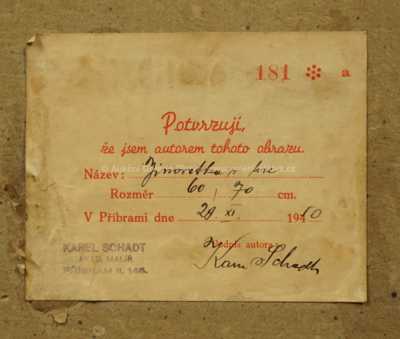 181 ❇ a
Potvrzuji,
že jsem autorem tohoto obrazu.
Název:
Rozměr 60 / 70 cm.
V Příbrami dne 29. XI. 1940
Podpis autora:
Karel Schadt
KAREL SCHADT
AKAD. MALÍŘ
PŘÍBRAM II. 146.